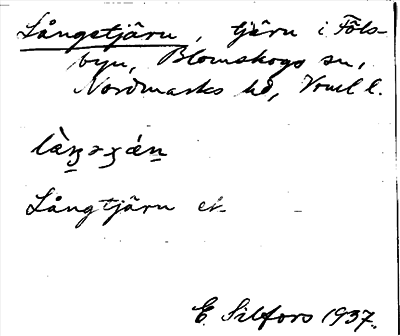 Långetjärn, tjärn i Föls-
byn, Blomskogs sn,
Nordmarks hd, Vrml l.
Långtjärn ek.
E. Silfors 1937.